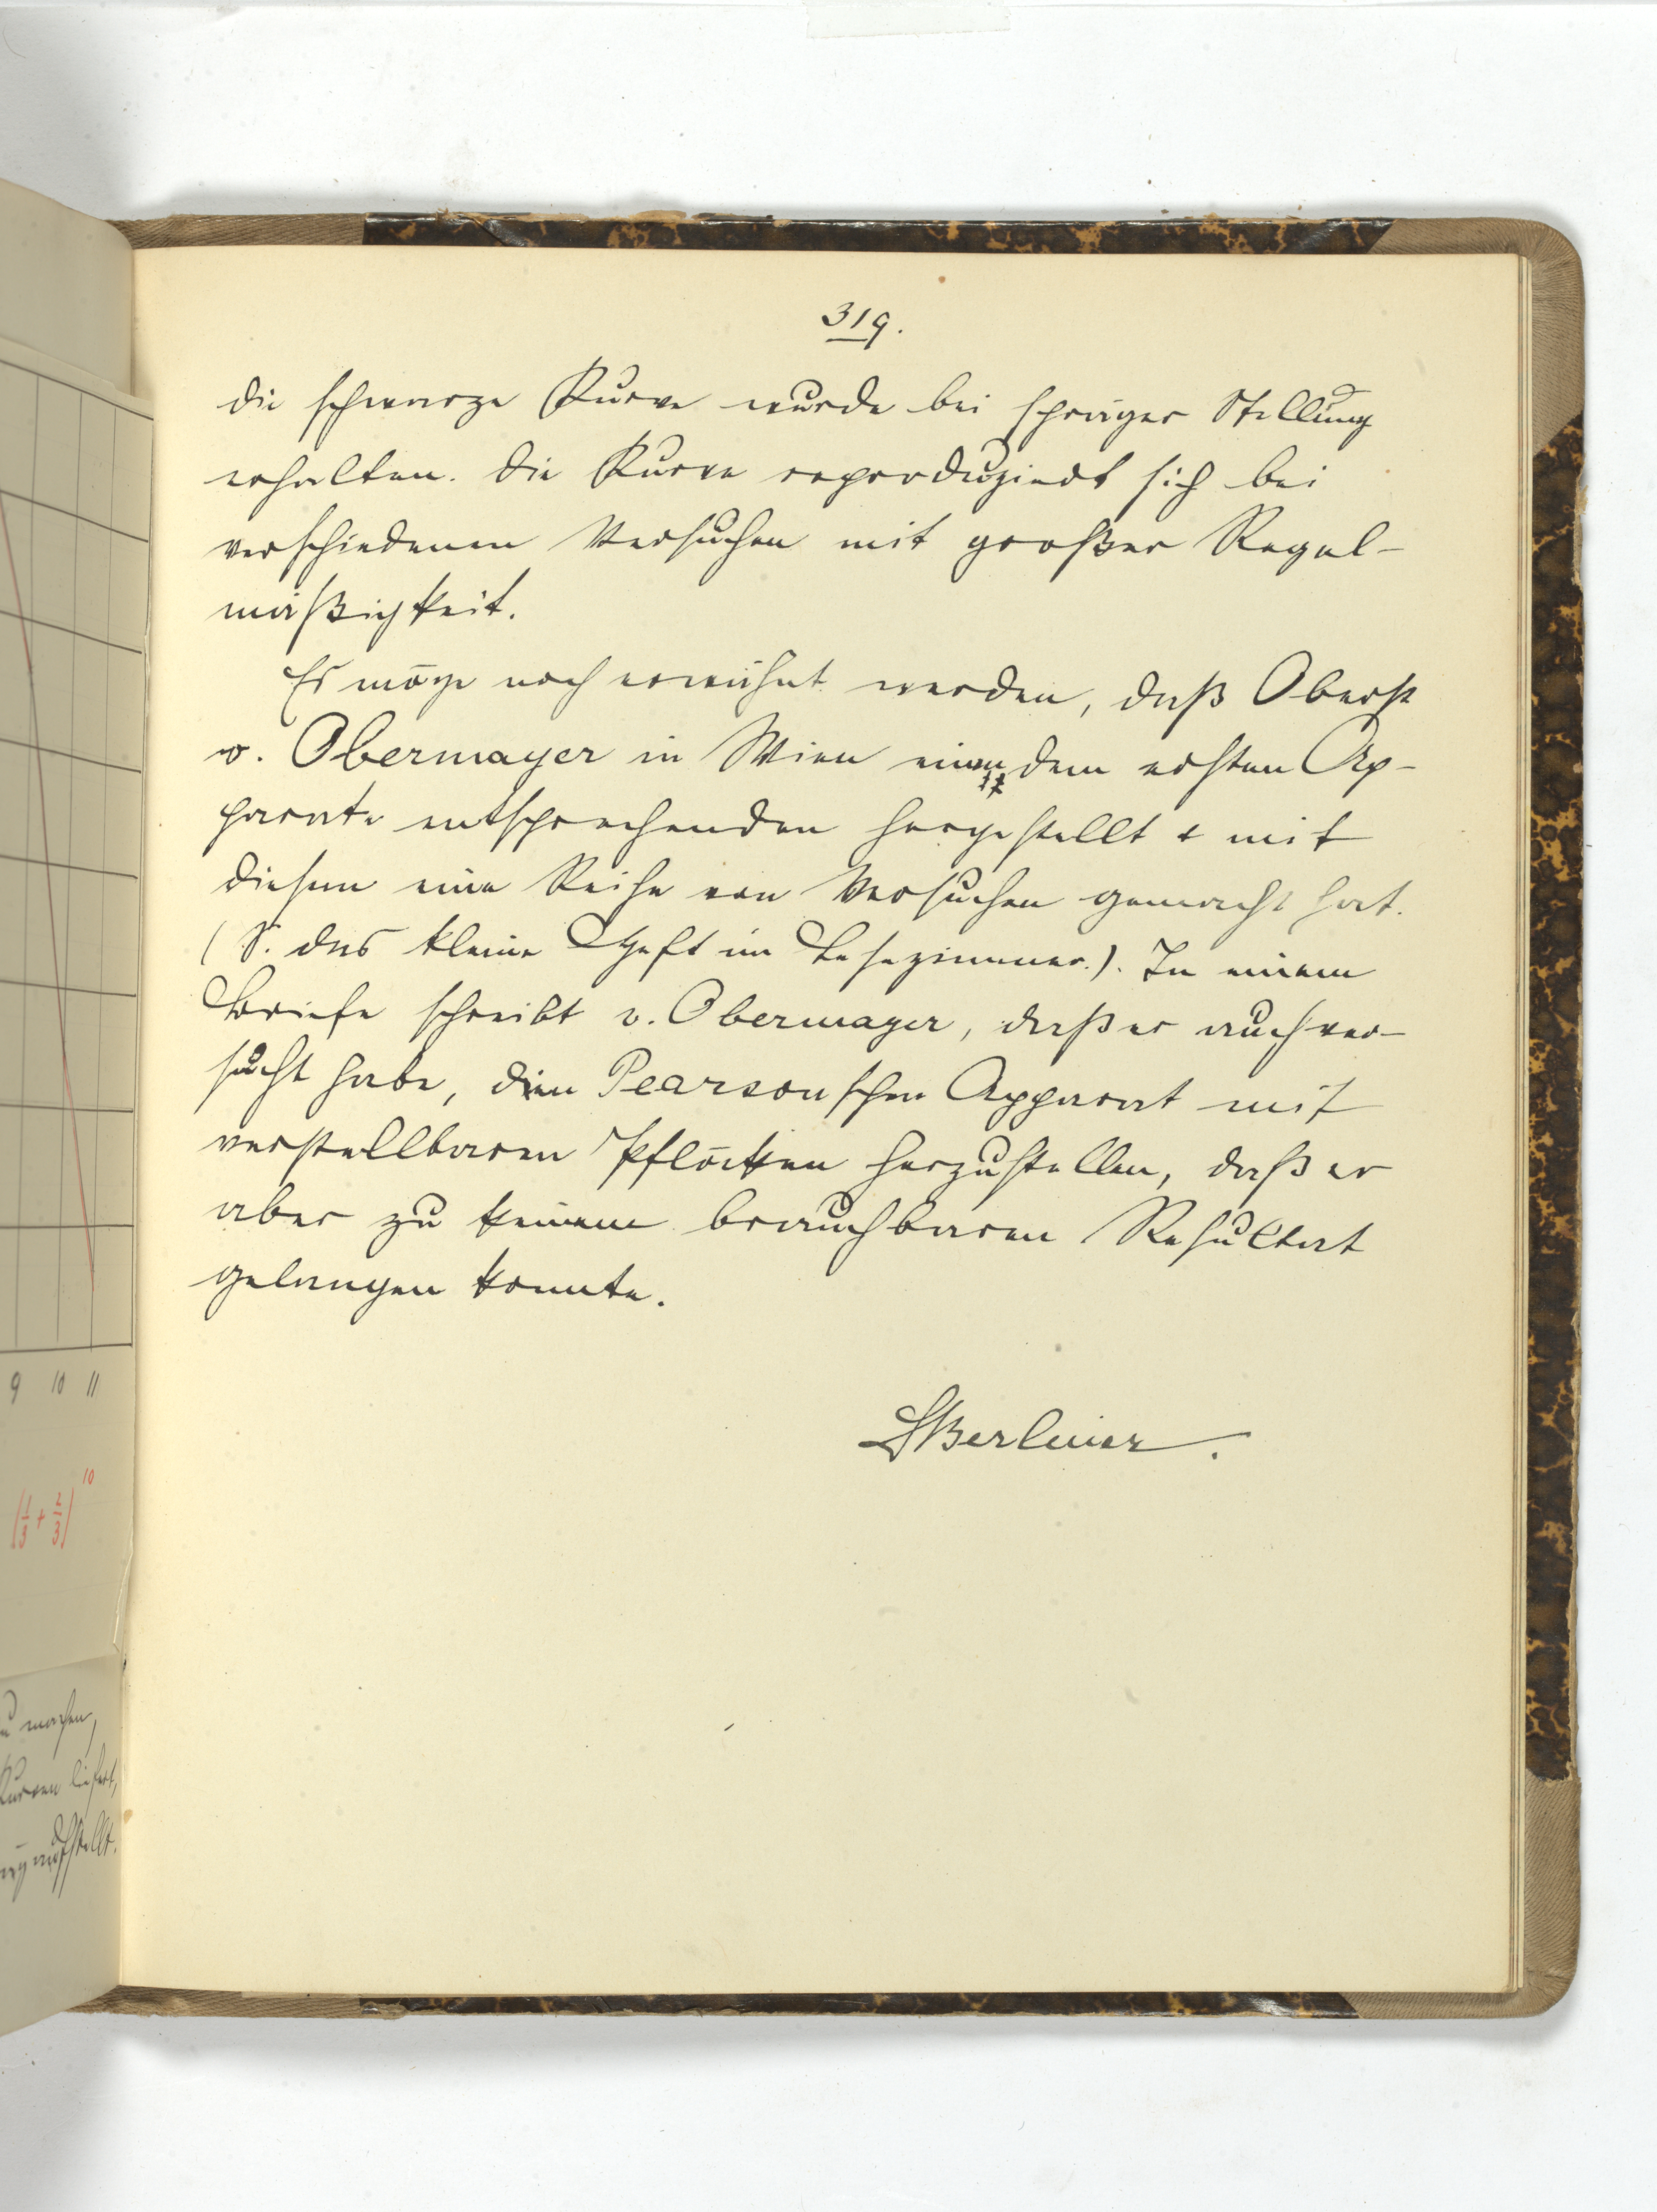 319.
die schwarze Kurve wurde bei schräger Stellung
erhalten. Die Kurve reproduziert sich bei
verschiedenen Versuchen mit großer Regel-
mäßigkeit.
Es möge noch erwähnt werden, daß Oberst
v. Obermayer in Wien einen dem ersten Ap-
parate entsprechenden hergestellt & mit
diesem eine Reihe von Versuchen gemacht hat.
(S. das kleine Heft im Lesezimmer.). In einem
Briefe schreibt v. Obermayer, daß er auch ver-
sucht habe, den Pearsonschen Apparat mit
verstellbaren Pflöcken herzustellen, daß er
aber zu keinem brauchbaren Resultat
gelangen konnte.
Berliner.
9 10 11
(1/3 + 2/3)^10
zu machen,
Kurven liefert,
aufstellt.